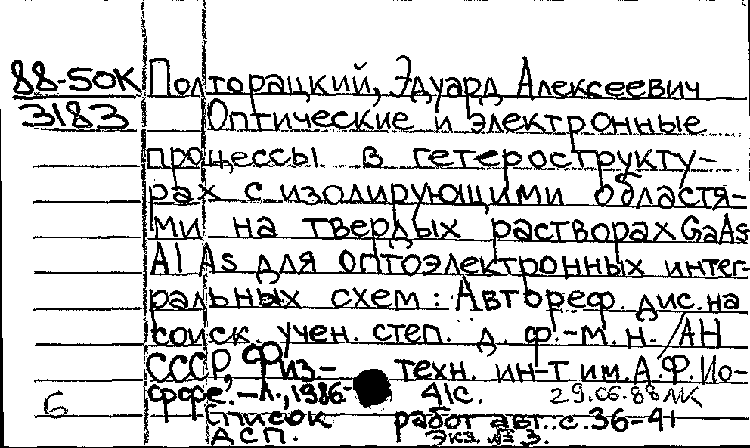 88-50К Полторацкий, Эдуард Алексеевич
3183 Оптические и электронные
процессы в гетерострукту-
рах с изолирующими областя-
ми на твердых растворах GaAs
AlAs для оптоэлектронных интег-
ральных схем : Автореф. дис. на
соиск. учен. степ. д. ф.-м. н. /АН
СССР, Физ.- техн. ин-т им. А.Ф. Ио-
ффе. - Л., 1986- 41с. 29.06.88 ЛК
6 Список работ авт.: с. 36-41
ДСП. Экз. № 3.